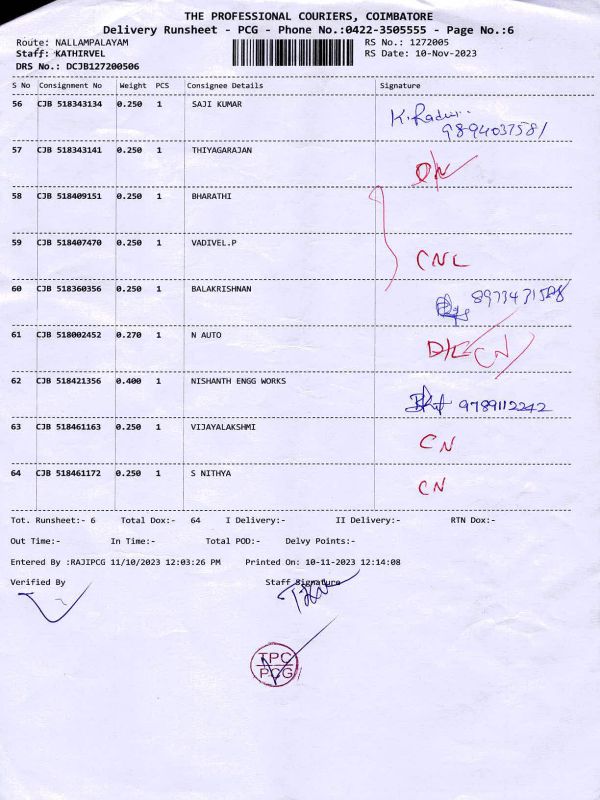 THE PROFESSIONAL COURIERS, COIMBATORE
Delivery Runsheet - PCG - Phone No.:0422-3505555 - Page No.:6
Route: NALLAMPALAYAM RS No.: 1272005
Staff: KATHIRVEL RS Date: 10-Nov-2023
DRS No.: DCJB127200506
S No Consignment No Weight PCS Consignee Details Signature
56 CJB 518343134 0.250 1 SAJI KUMAR
9894037581
57 CJB 518343141 0.250 1 THIYAGARAJAN
58 CJB 518409151 0.250 1 BHARATHI
59 CJB 518407470 0.250 1 VADIVEL.P CNL
60 CJB 518360356 0.250 1 BALAKRISHNAN
61 CJB 518002452 0.270 1 N AUTO D/C CN
62 CJB 518421356 0.400 1 NISHANTH ENGG WORKS 9789112242
63 CJB 518461163 0.250 1 VIJAYALAKSHMI CN
64 CJB 518461172 0.250 1 S NITHYA CN
Tot. Runsheet:- 6 Total Dox:- 64 I Delivery:- II Delivery:- RTN Dox:-
Out Time:- In Time:- Total POD:- Delvy Points:-
Entered By :RAJIPCG 11/10/2023 12:03:26 PM Printed On: 10-11-2023 12:14:08
Verified By Staff Signature
TPC
PCG